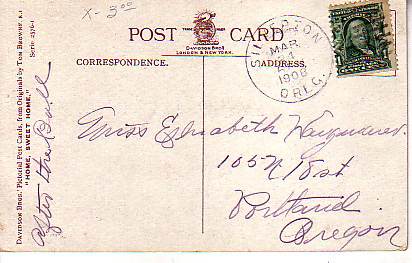 X - 3 00
POST CARD
TRADE MARK
DAVIDSON BROS
LONDON & NEW YORK.
CORRESPONDENCE.
ADDRESS.
SILVERTON
MAR
1908
OREG.
Miss Elizabeth
105 N 18 st
Portland
Oregon
DAVIDSON BROS.' Pictorial Post Cards, from Originals by TOM BROWNE, R.I
"HOME, SWEET HOME."
Serie 2576-1
after the Ball